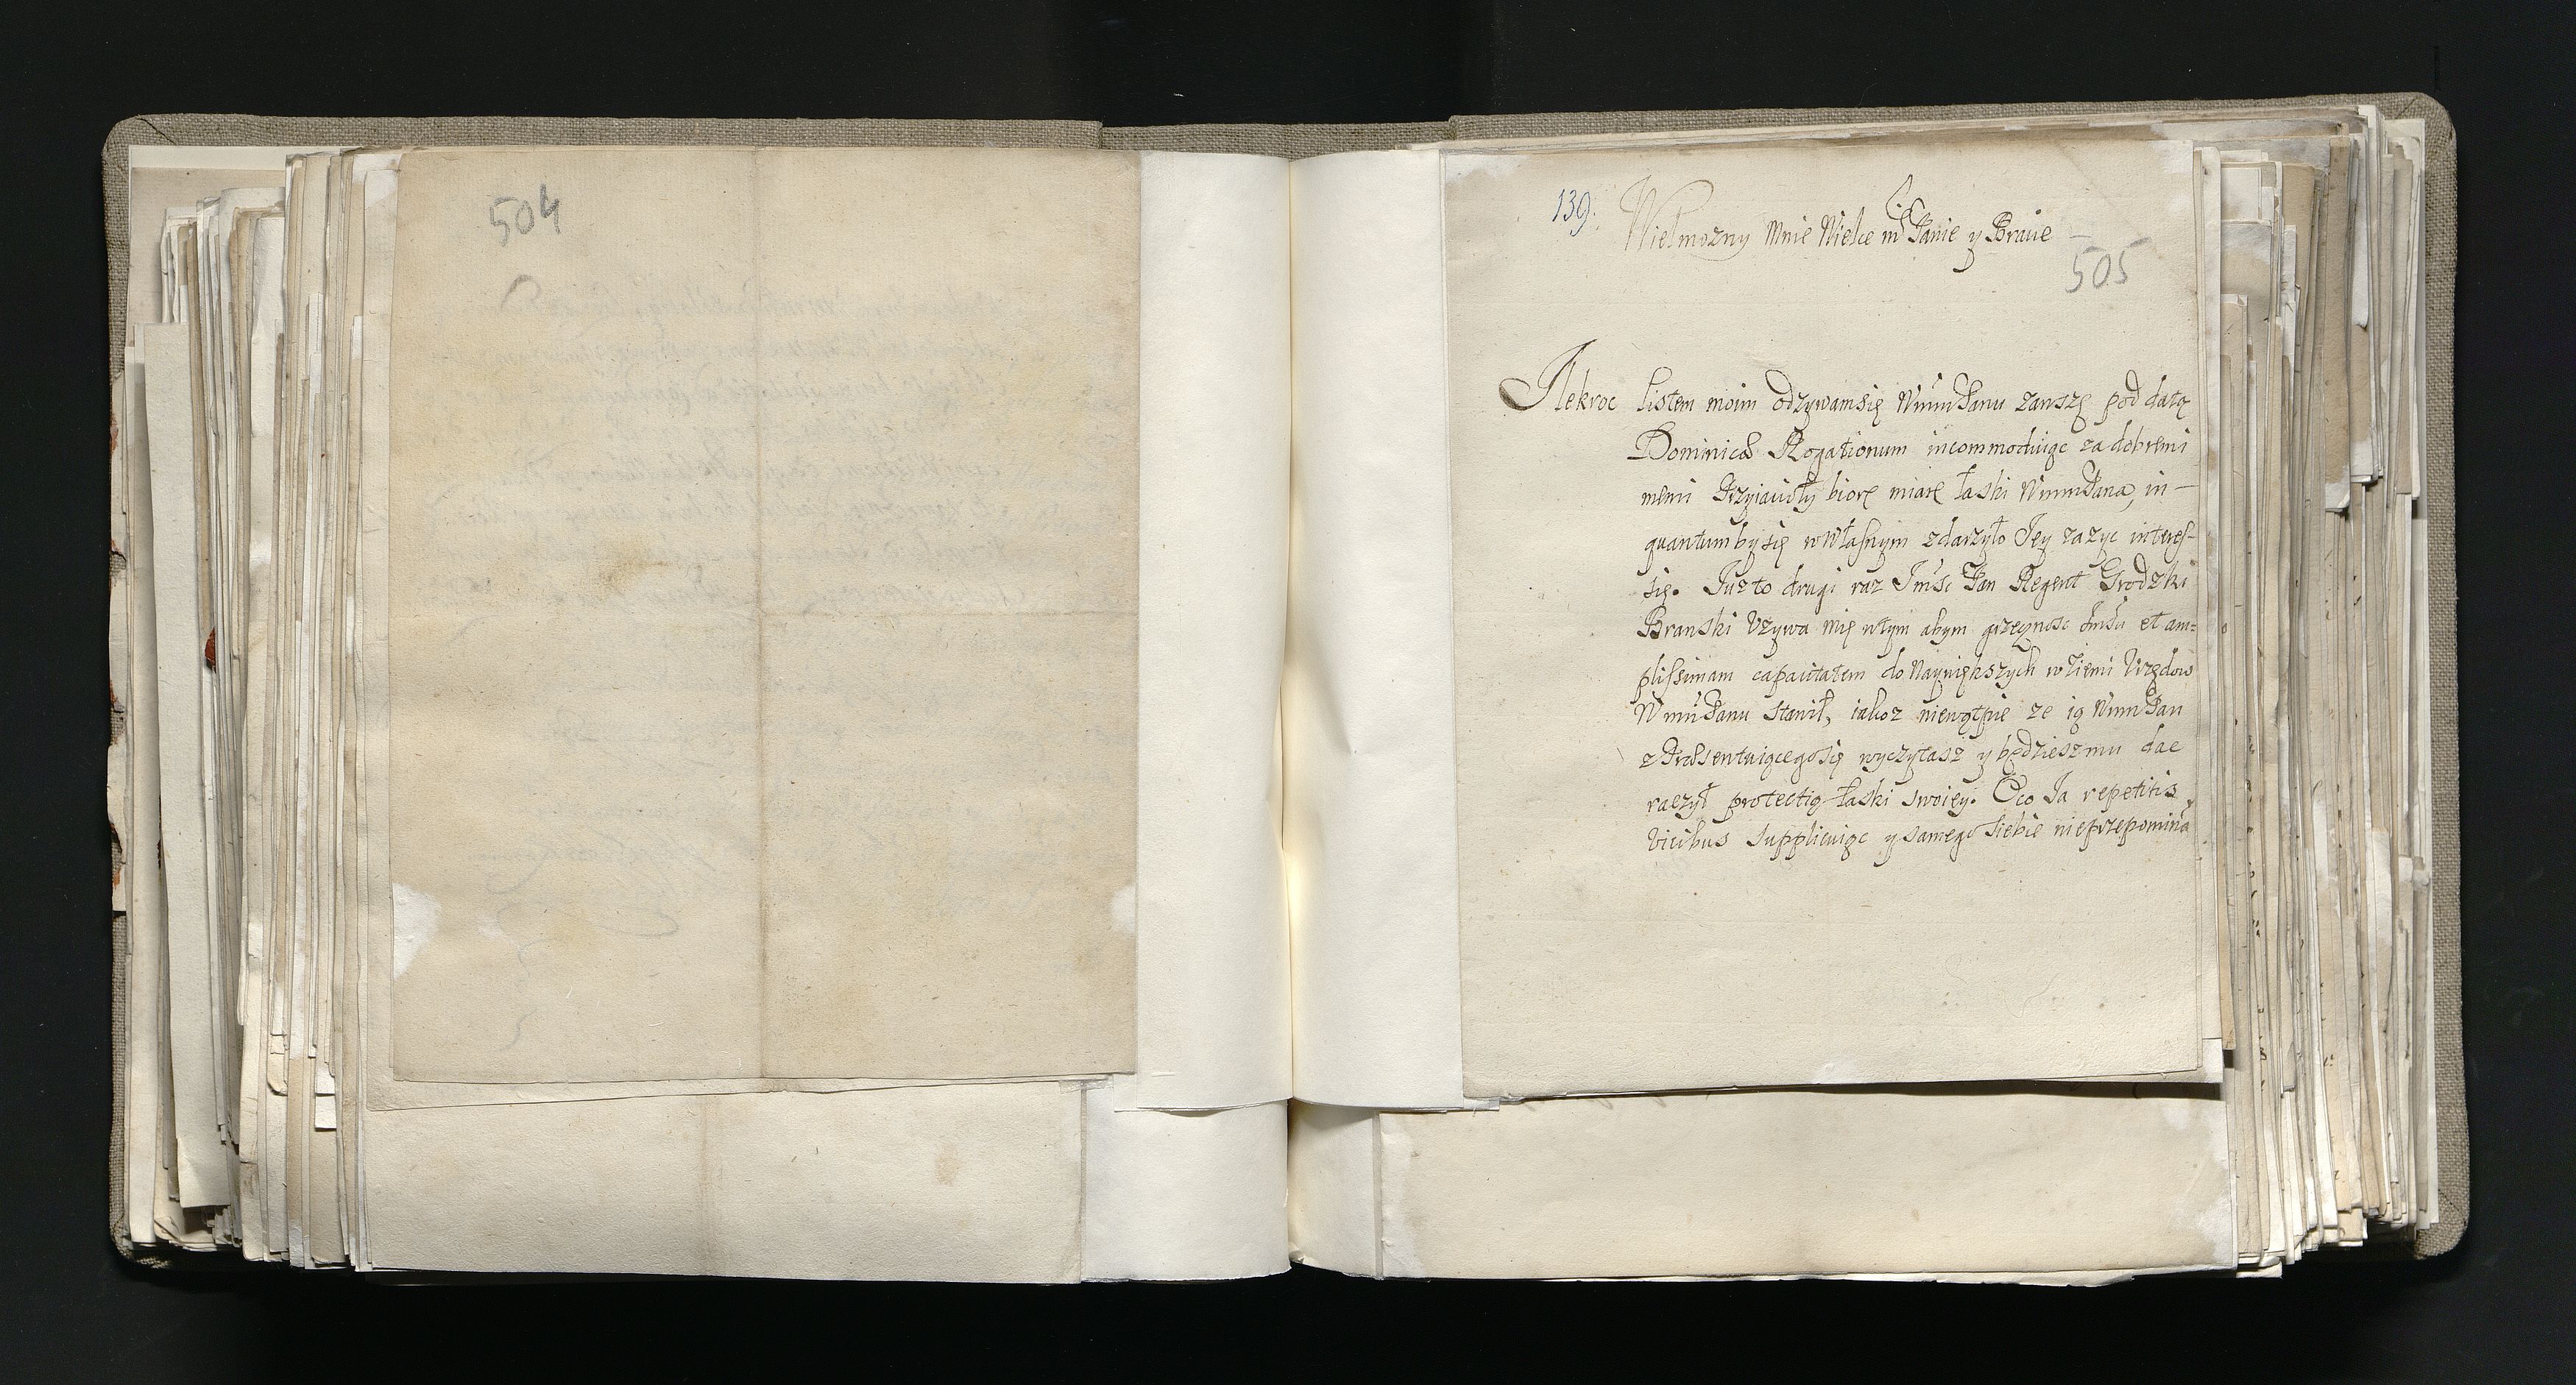 504
139.
Wielmozny Mnie Wielce mć Panie y Bracie
505
Ilekroc listem moim odzywamsię WmmPanu zawszę pod datą
Dominicæ Rogationum incommoduiąc za dobremi
memi Przyiacioły biorę miarę łaski WmmPana, in-
quantum by się w własnym zdarzyło Iey zazyc interes-
się. Iuz to drugi raz Imsc Pan Regent Grodzki
Branski Uzywa mię wtym abym grzegnosc Imsci et am=
plissimam capacitatem do Naywiększych w Ziemi Urzędow
WmmPanu stawił, iakoz niewątpie ze ią WmmPan
z Præsentuiącegosię wyczytasz y będziesz mu dac
raczył protectią łaski swoiey. Oco Ia repetitis
vicibus supplicuiąc y samego siebie nieprzepomina